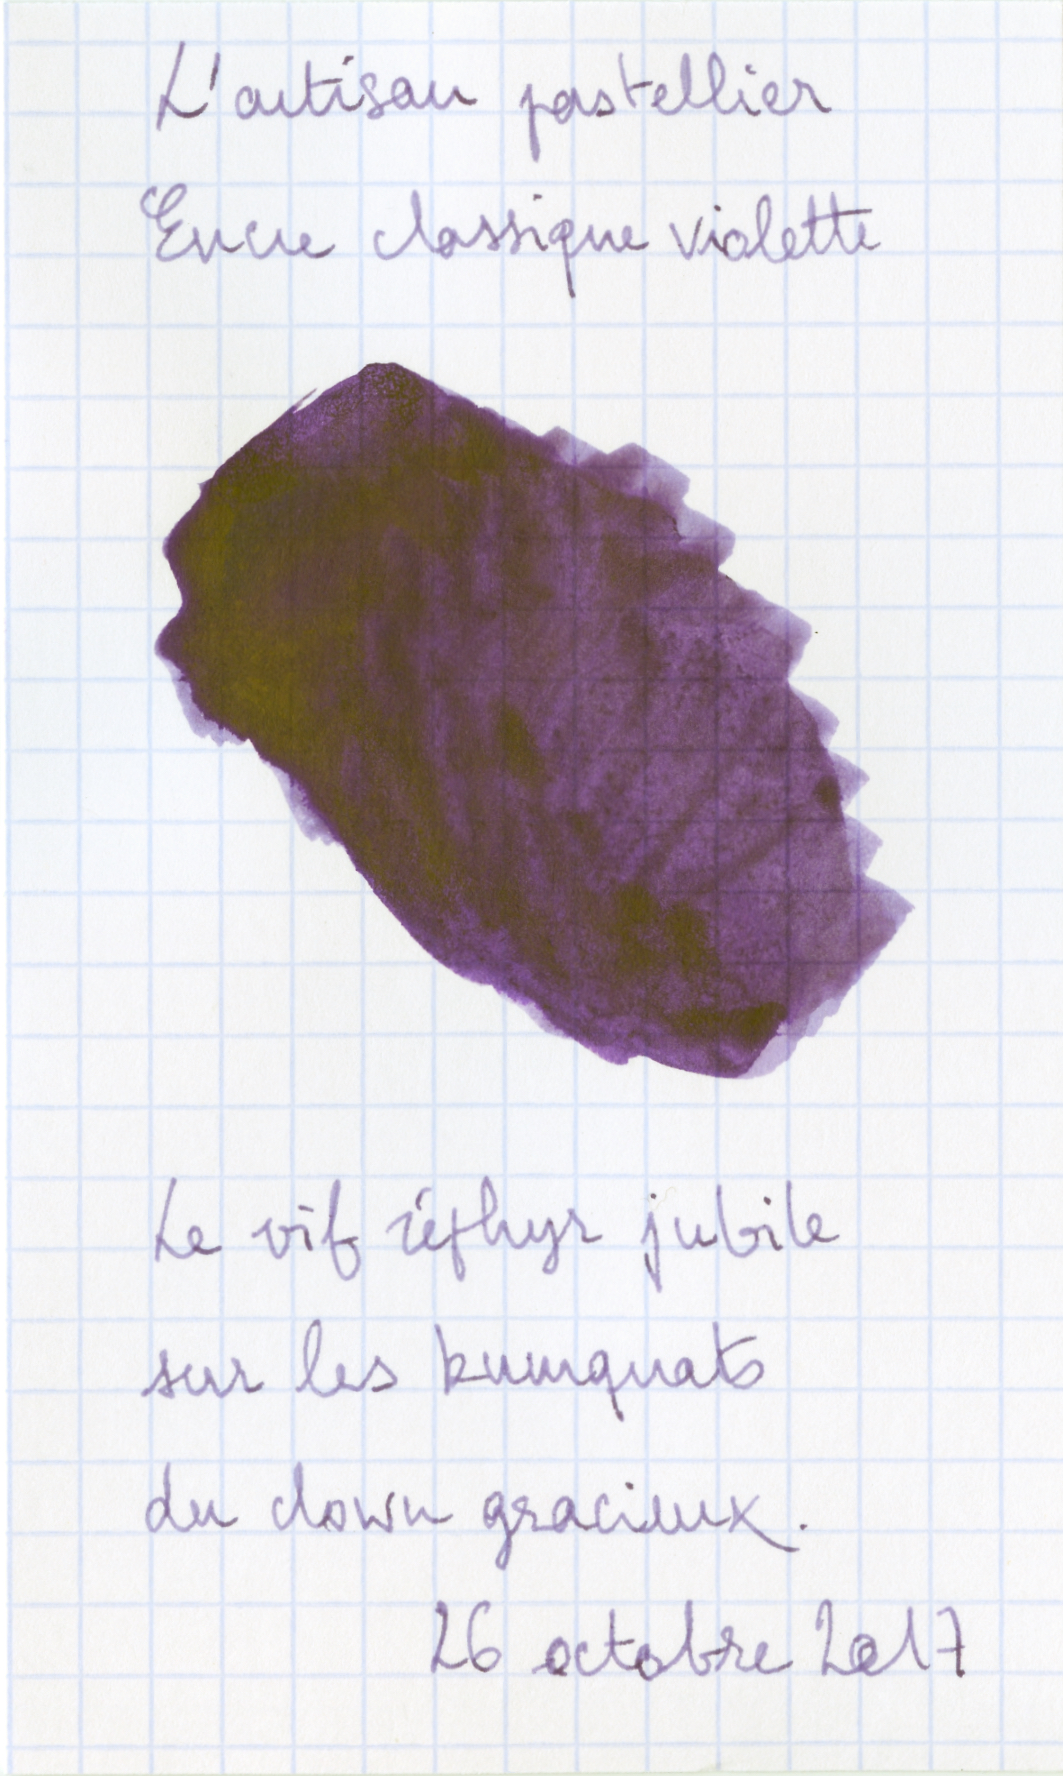 L'artisan pastellier
Encre classique violette
Le vif zéphyr jubile
sur les kumquats
du clown gracieux.
26 octobre 2017